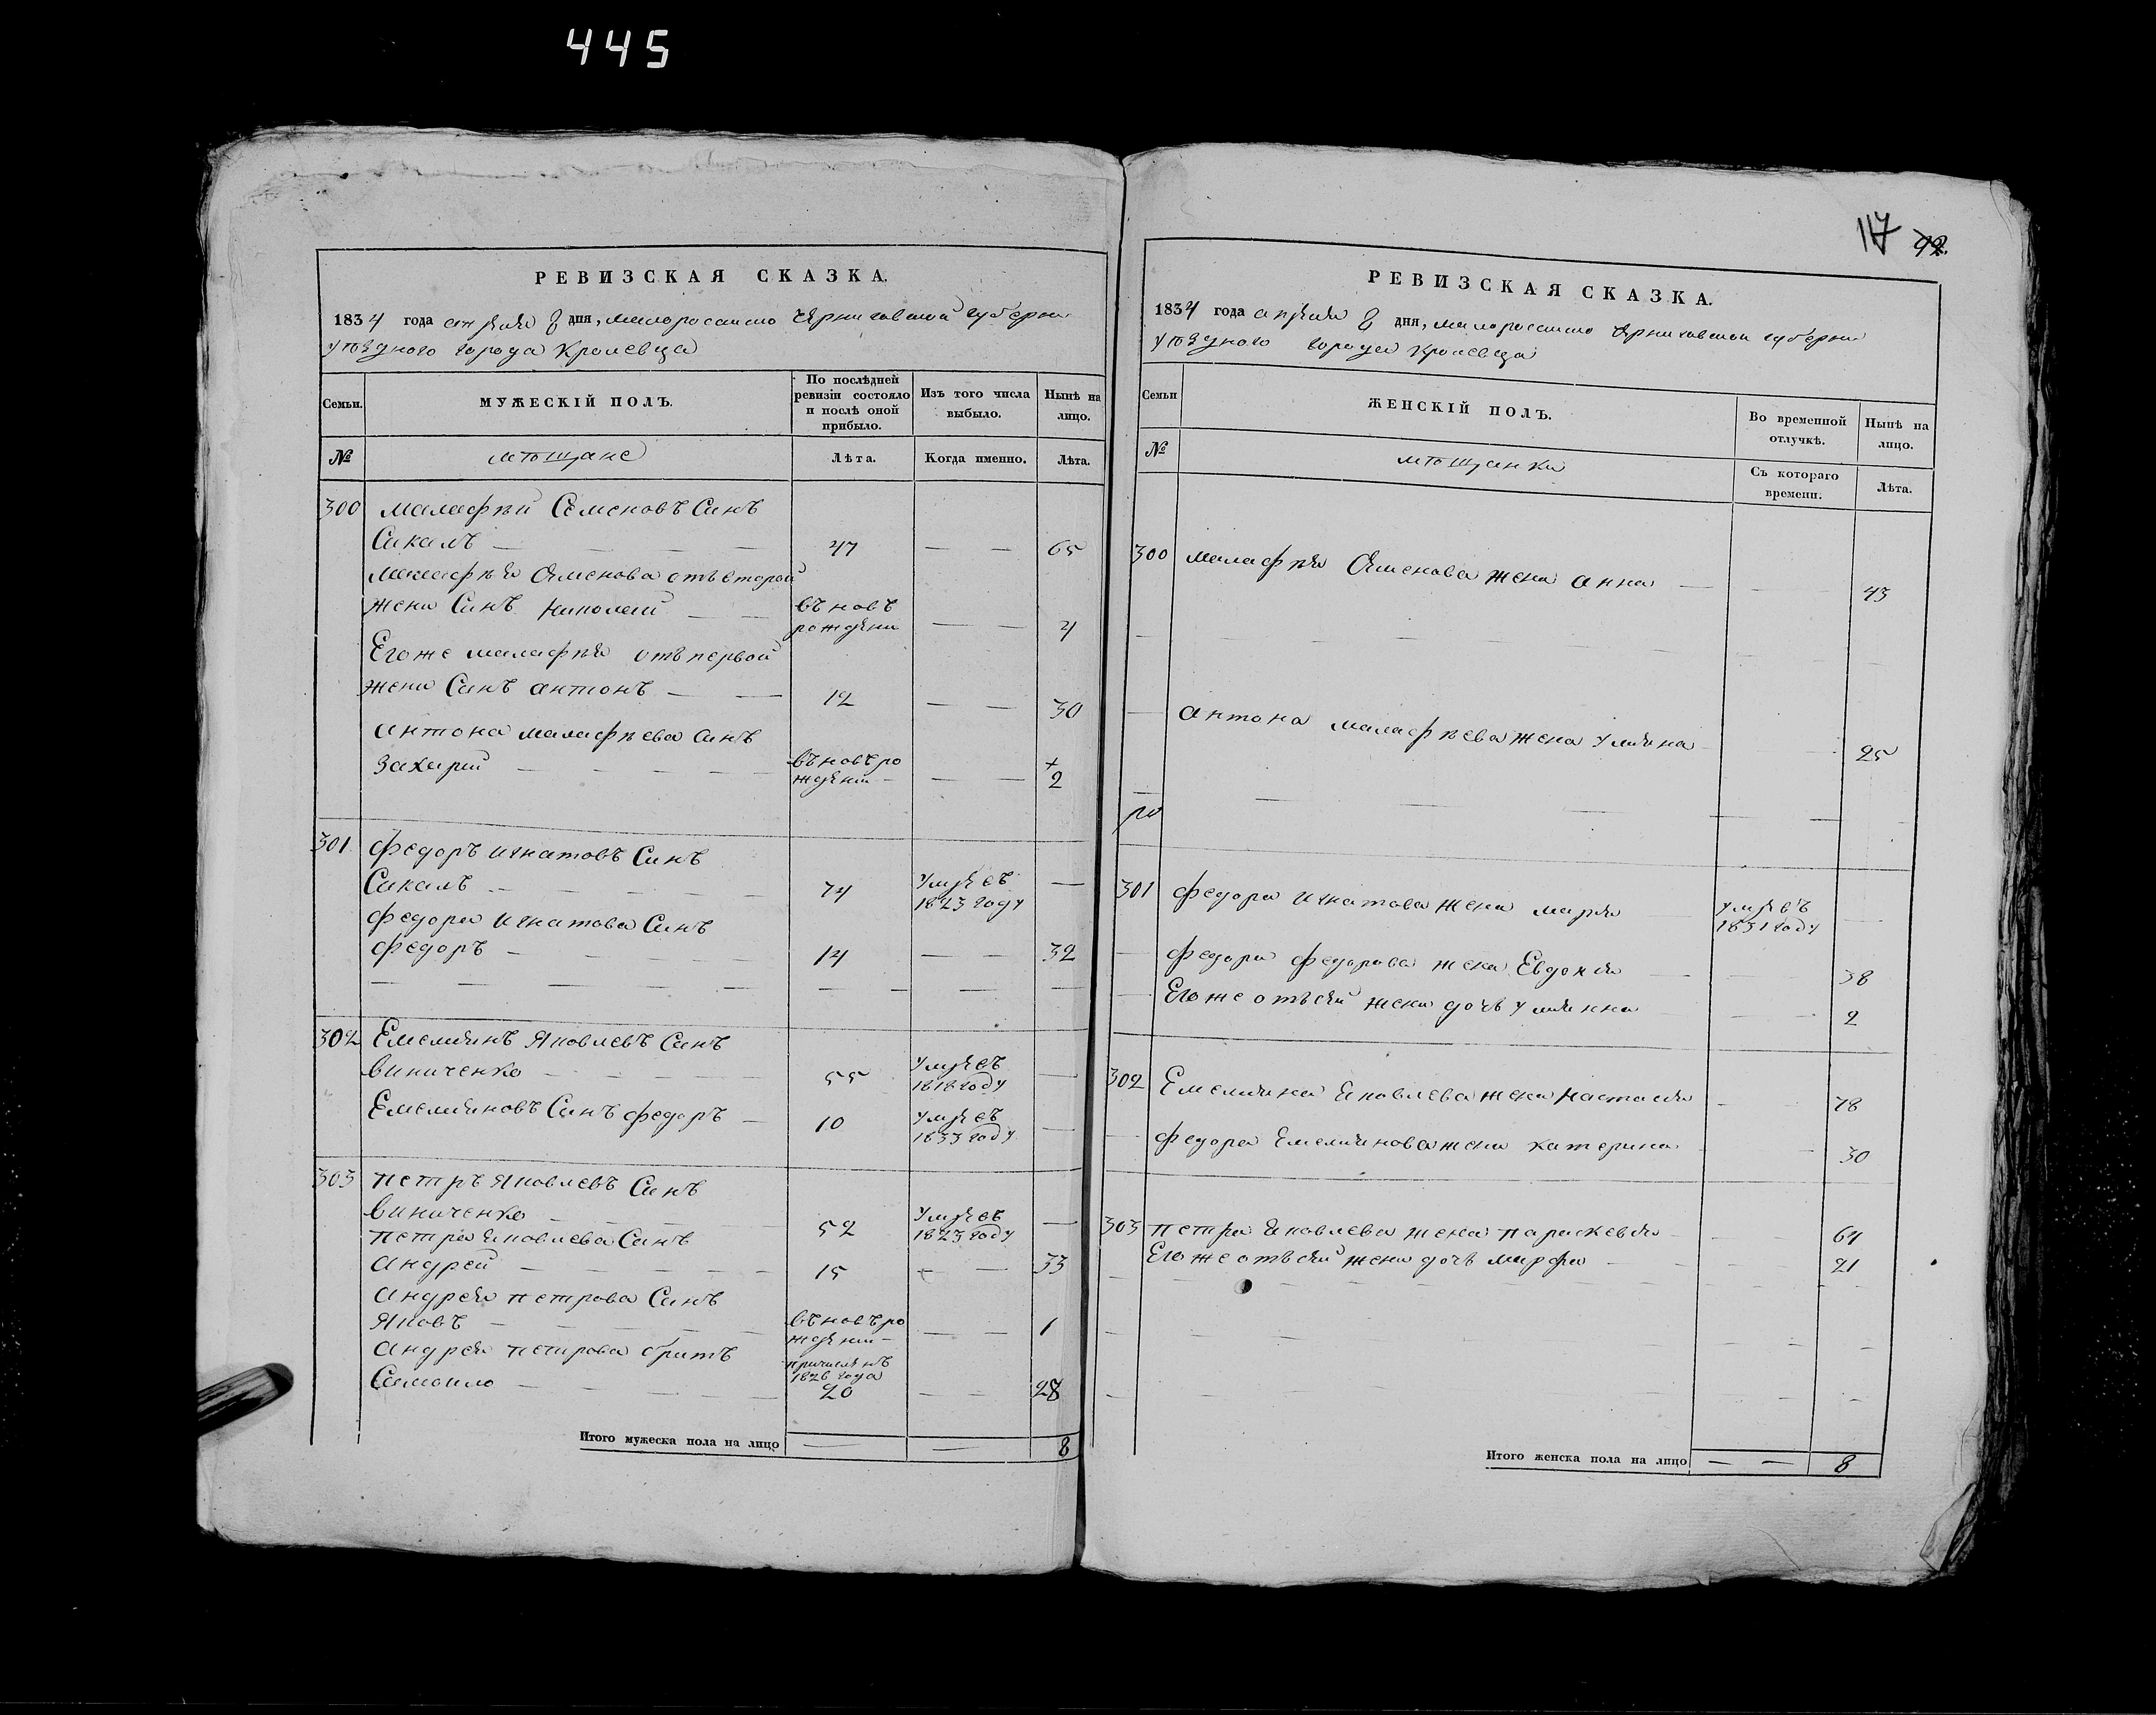 445
РЕВИЗСКАЯ СКАЗКА.
1834 года апреля 8 дня, малоросийско черниговской губерни
уѣзднаго города Кролевца
Семьи.
МУЖЕСКІЙ ПОЛЪ.
По послѣдней ревизіи состояло и послѣ оной прибыло.
Изъ того числа выбыло.
Нынѣ на лицо.
№
мѣщане
Лѣта.
Когда именно.
Лѣта.
300 Малафѣй Семеновъ Синъ
Сикалъ — 47 — — 65
Малафѣя Семенова отъ второй
жени Синъ Николай — въ новѣ рождени — — 4
Его же малафѣя отъ первой
жени Синъ антонъ — 12 — — 30
антона малафѣева Синъ
Захарий — въ новѣ рождении — — 2
301 федоръ игнатовъ Синъ
Сикалъ — 74 умре въ 1823 году —
федора игнатова Синъ
федоръ — 14 — — 32
302 Емелиянъ Яковлевъ Синъ
виниченко — 55 умре въ 1818 году —
Емелияновъ Синъ федоръ — 10 умре въ 1833 году —
303 петръ Яковлевъ Синъ
виниченко — 52 умре въ 1823 году —
петра Яковлева Синъ
андрей — 15 — — 33
андрея петрова Синъ
Яковъ — въ новѣ рождении — — 1
андрея петрова братъ
Самойло — причисленъ 1826 года 20 — — 28
Итого мужеска пола на лицо — — 8
117 92.
РЕВИЗСКАЯ СКАЗКА.
1834 года апреля 8 дня, малоросийско черниговской губерни
уѣзднаго города Кролевца
Семьи
ЖЕНСКІЙ ПОЛЪ.
Во временной отлучкѣ.
Нынѣ на лицо.
№
мѣщанки
Съ котораго времени.
Лѣта.
300 малафѣя Семенова жена анна — 43
антона малафѣева жена улияна — 25
301 федора игнатова жена мария — умре въ 1831 году —
федора федорова жена Евдокия — 38
Его же отъ сей жени дочь улиянна — 2
302 Емелияна Яковлева жена настасия — 78
федора Емелиянова жена катерина — 30
303 петра Яковлева жена параскевия — 64
Его же отъ сей жени дочь марфа — 21
Итого женска пола на лицо — — 8